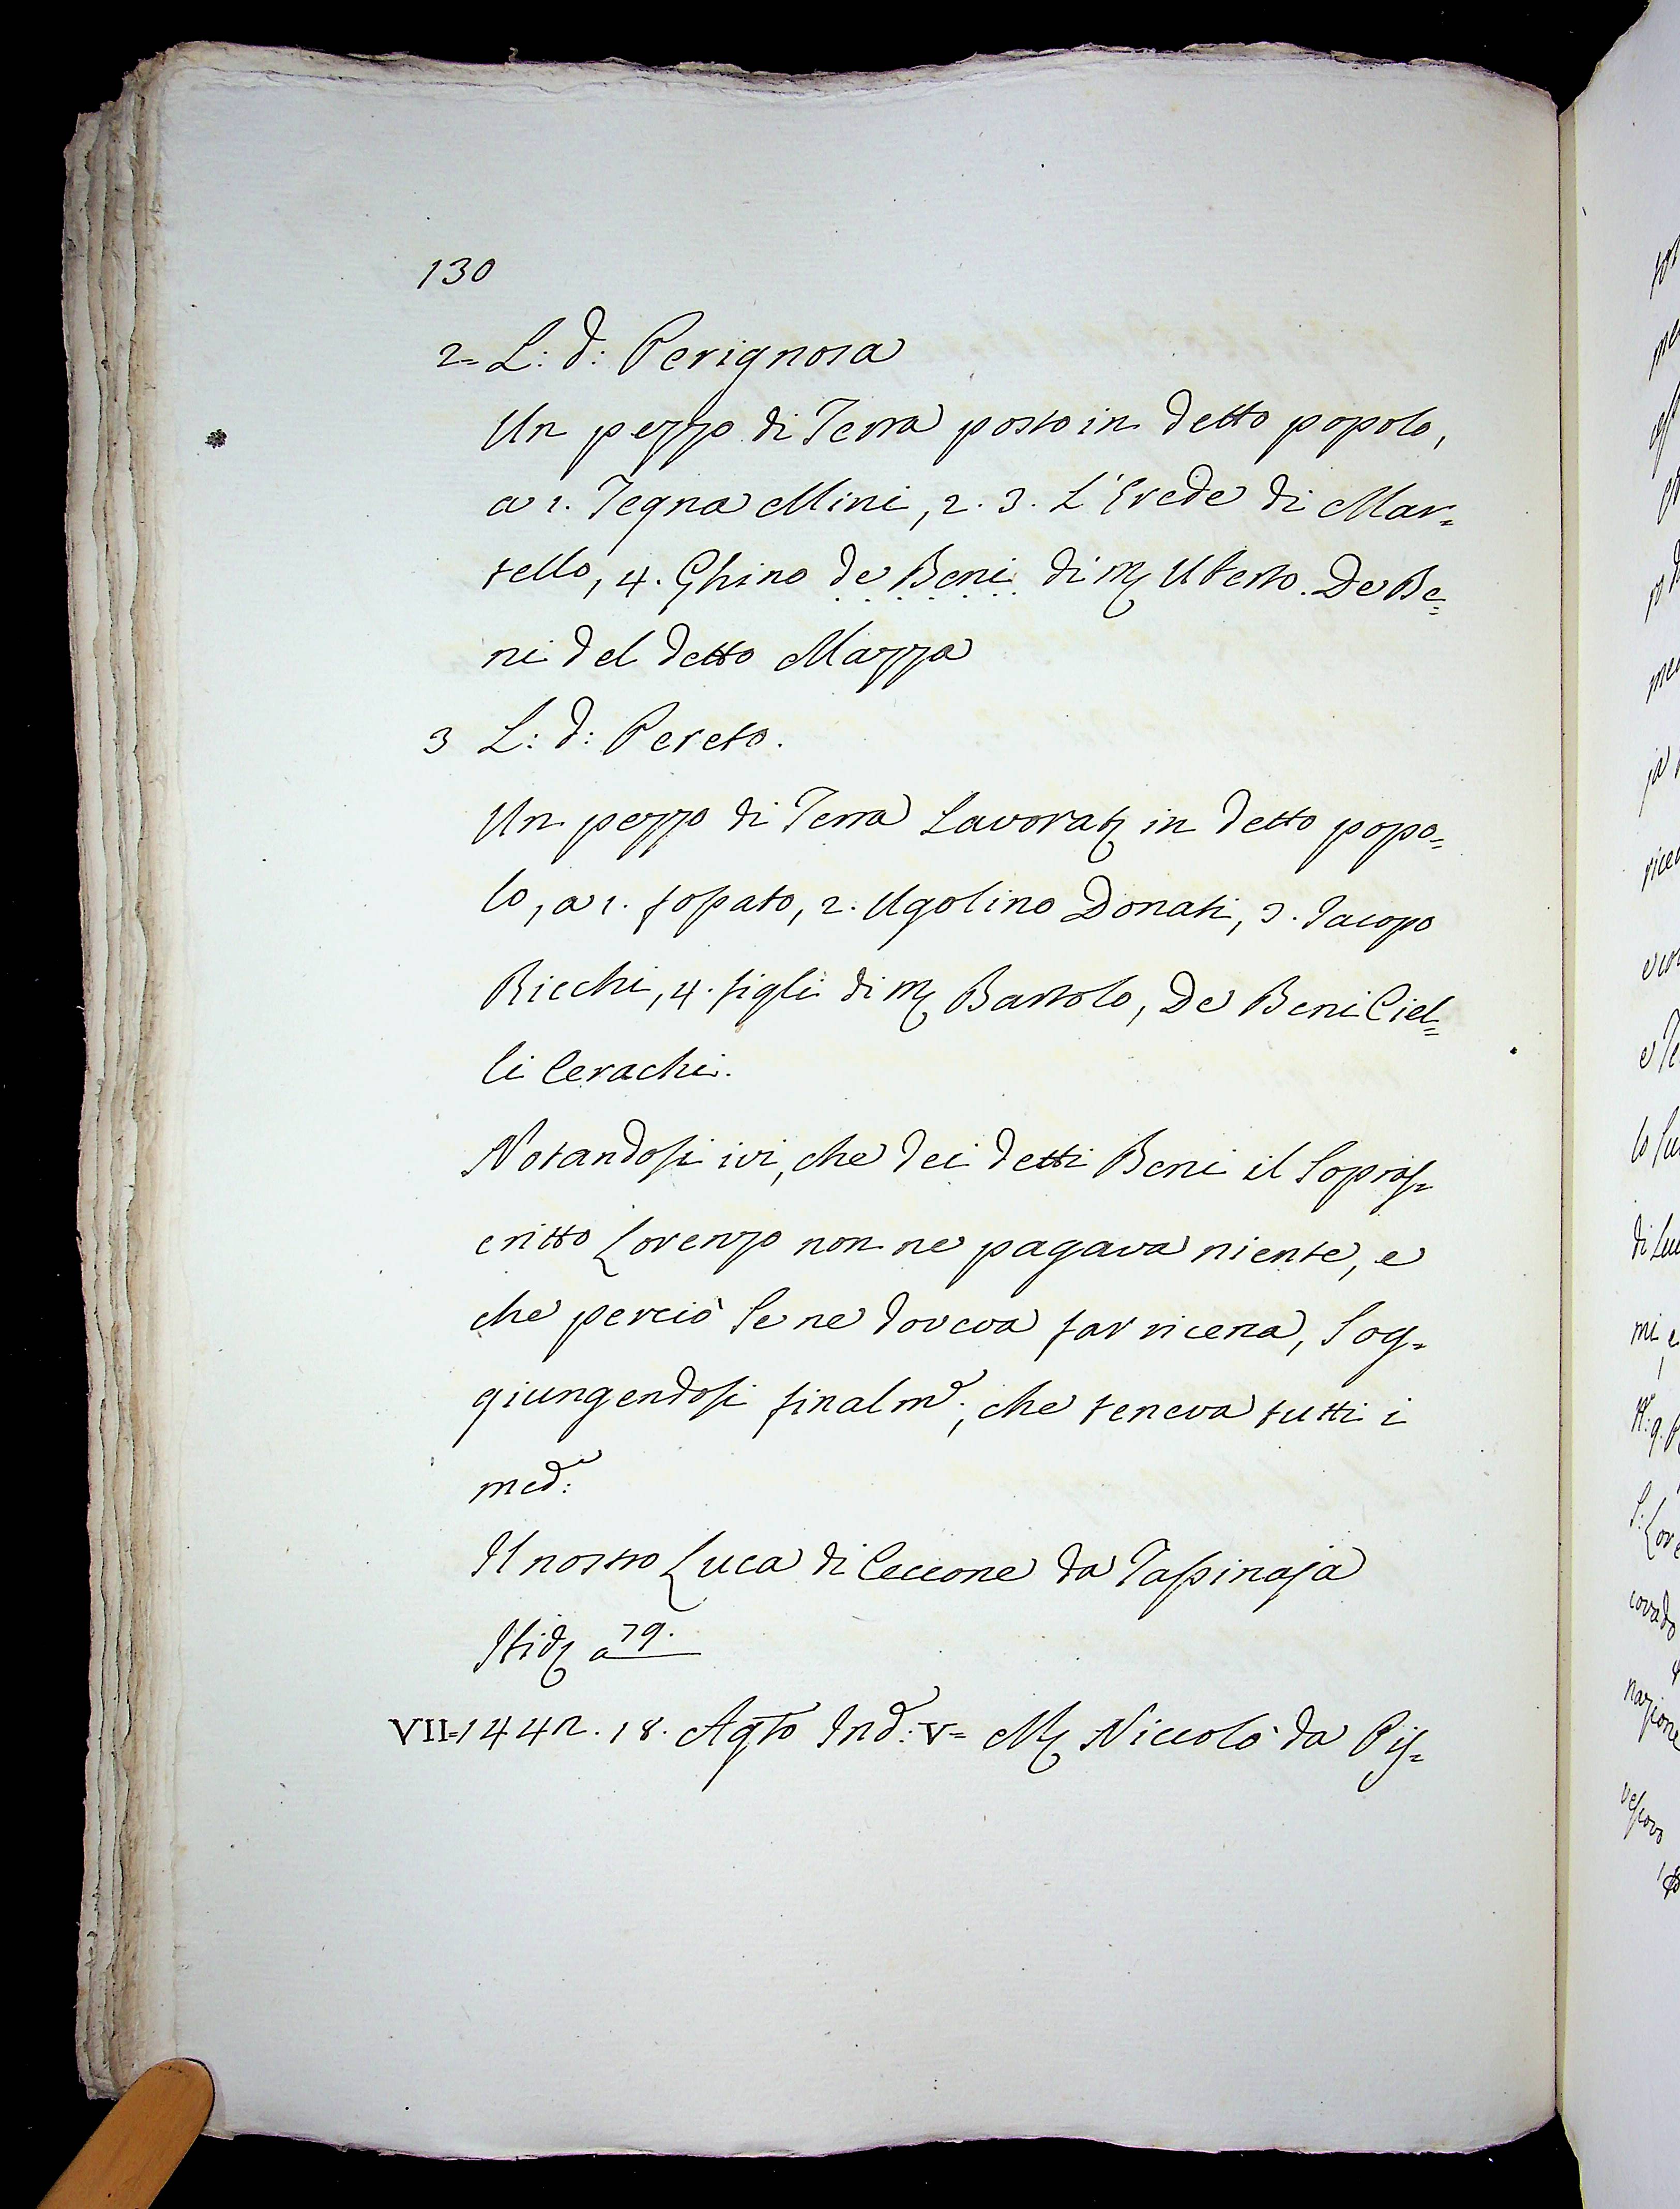 130
2= L: d: Perignora
Un pezzo di Terra posto in detto popolo,
a 1. Tegna Mini, 2. 3. L'Erede di Mar=
tello, 4. Ghino de Beni di M Uberto. De Be=
ni del detto Mazza
3 L: d: Pereto.
Un pezzo di Terra Lavorat in detto popo=
lo, a 1. fossato, 2. Ugolino Donati, 3. Jacopo
Ricchi, 4. figli di M Bartolo, De Beni Ciel=
li Cerachi.
Notandosi ivi, che dei detti Beni il Sopras=
critto Lorenzo non ne pagava niente, e
che perciò Se ne doveva far ricerca, Sog=
giungendosi finalm.e, che teneva tutti i
med:i
Il nostro Luca di Ceccone da Tassinaja
Ibid a 79.
VII=1442. 18. Agto Ind: V= M Niccolò da Pis=